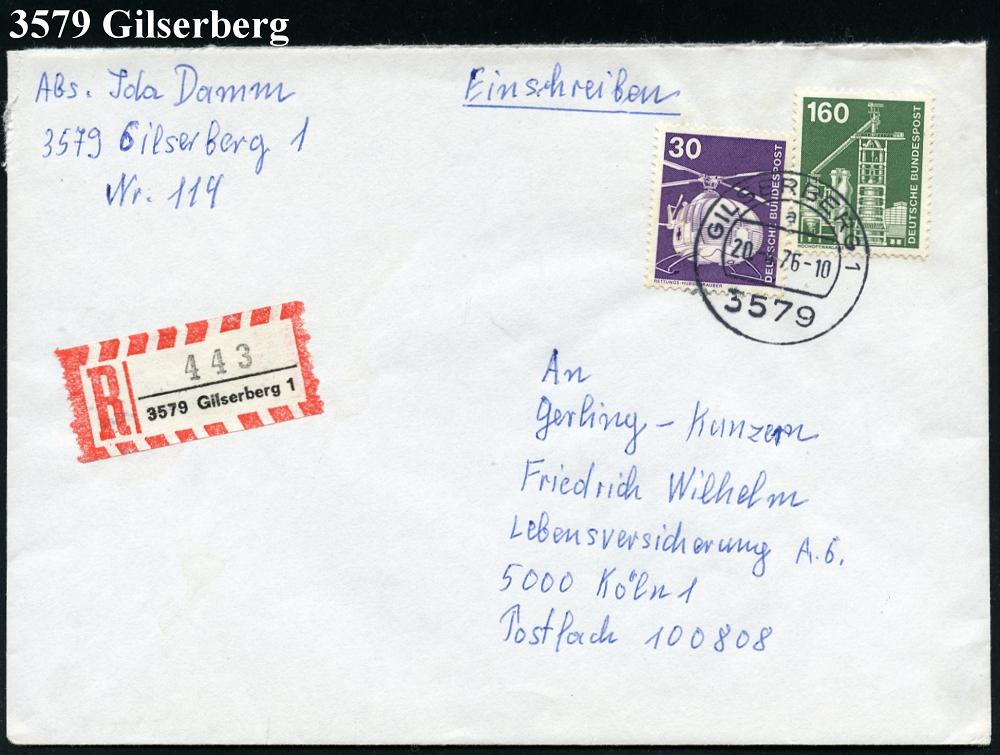 3579 Gilserberg
Abs. Ida Damm
3579 Gilserberg 1
Nr. 114
Einschreiben
30
DEUTSCHE BUNDESPOST
RETTUNGS-HUBSCHRAUBER
160
DEUTSCHE BUNDESPOST
HOCHOFENANLAGE
GILSERBERG 1
a
20. 76-10
3579
R
443
3579 Gilserberg 1
An
Gerling - Konzern
Friedrich Wilhelm
Lebensversicherung A.G.
5000 Köln 1
Postfach 100808